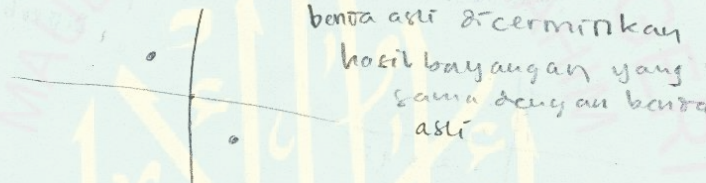 benda asli dicerminkan
hasil bayangan yang
sama dengan benda
asli